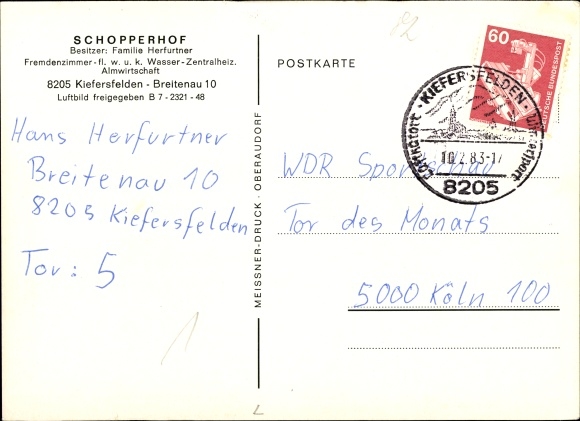 SCHOPPERHOF
Besitzer: Familie Herfurtner
Fremdenzimmer-fl. w. u. k. Wasser-Zentralheiz.
Almwirtschaft
8205 Kiefersfelden - Breitenau 10
Luftbild freigegeben B 7 - 2321 - 48
Hans Herfurtner
Breitenau 10
8205 Kiefersfelden
Tor: 5
MEISSNER-DRUCK · OBERAUDORF
POSTKARTE
60
DEUTSCHE BUNDESPOST
· KIEFERSFELDEN ·
10.2.83-17
8205
WDR Sportschau
Tor des Monats
5000 Köln 100